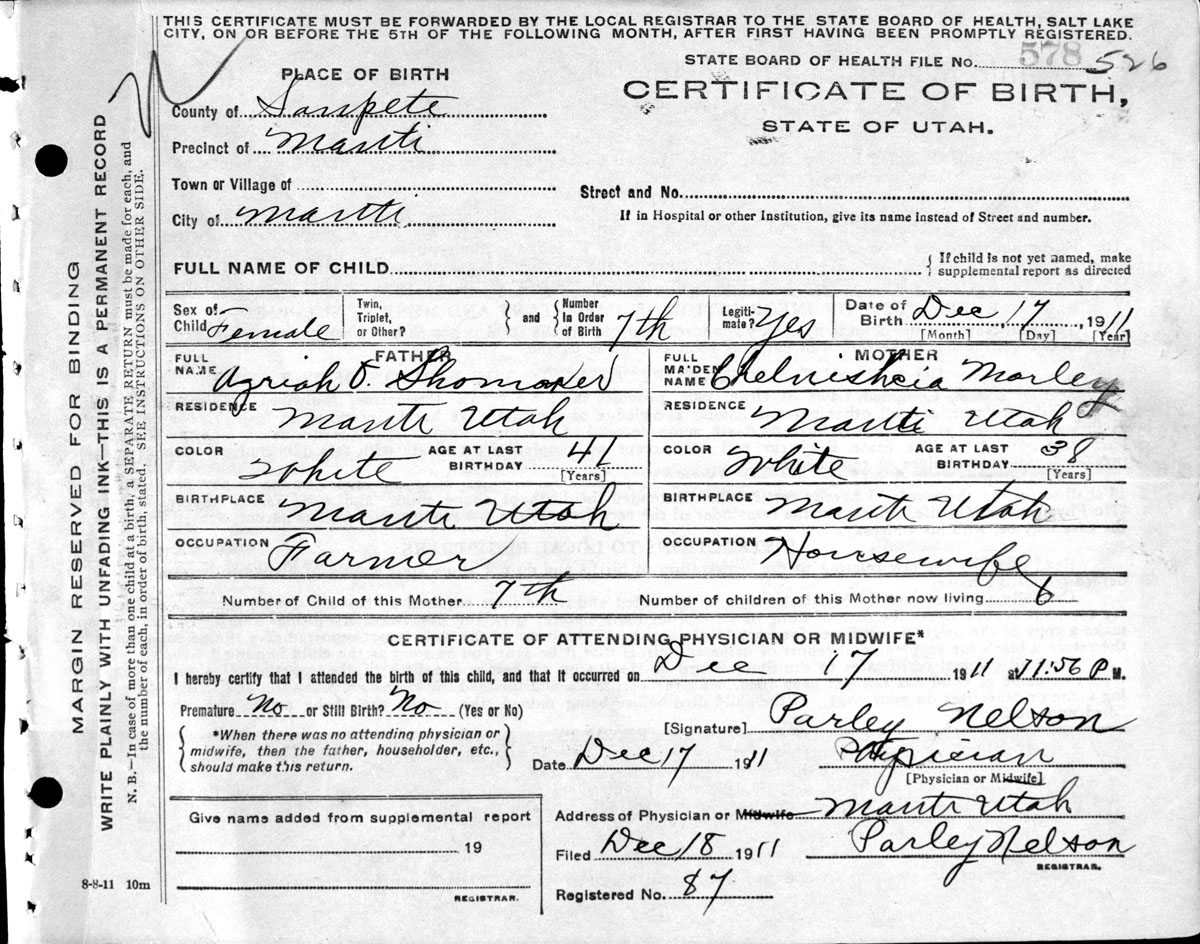 THIS CERTIFICATE MUST BE FORWARDED BY THE LOCAL REGISTRAR TO THE STATE BOARD OF HEALTH, SALT LAKE
CITY, ON OR BEFORE THE 5TH OF THE FOLLOWING MONTH, AFTER FIRST HAVING BEEN PROMPTLY REGISTERED.
STATE BOARD OF HEALTH FILE No. 578 526
PLACE OF BIRTH
CERTIFICATE OF BIRTH,
STATE OF UTAH.
County of Sanpete
Precinct of Manti
Town or Village of
Street and No.
City of Manti
If in Hospital or other Institution, give its name Instead of Street and number.
FULL NAME OF CHILD
{ If child is not yet named, make
supplemental report as directed
Sex of Child Female
Twin, Triplet, or Other? } and { Number In Order of Birth 7th
Legitimate? Yes
Date of Birth Dec 17, 1911
[Month] [Day] [Year]
FATHER
FULL NAME Azriah F. Shomaker
MOTHER
FULL MAIDEN NAME Morley
RESIDENCE Manti Utah
RESIDENCE Manti Utah
COLOR White AGE AT LAST BIRTHDAY 41 [Years]
COLOR White AGE AT LAST BIRTHDAY 38 [Years]
BIRTHPLACE Manti Utah
BIRTHPLACE Manti Utah
OCCUPATION Farmer
OCCUPATION Housewife
Number of Child of this Mother 7th Number of children of this Mother now living 6
CERTIFICATE OF ATTENDING PHYSICIAN OR MIDWIFE*
I hereby certify that I attended the birth of this child, and that it occurred on Dec 17 1911 at 11:56 P M.
Premature No or Still Birth? No (Yes or No)
[Signature] Parley Nelson
{ *When there was no attending physician or
midwife, then the father, householder, etc.,
should make this return. }
Date Dec 17 1911 Physician
[Physician or Midwife]
Give name added from supplemental report
19
REGISTRAR.
Address of Physician or Midwife Manti Utah
Filed Dec 18 1911 Parley Nelson
REGISTRAR.
Registered No. 87
8-8-11 10m
MARGIN RESERVED FOR BINDING
WRITE PLAINLY WITH UNFADING INK—THIS IS A PERMANENT RECORD
N. B.—In case of more than one child at a birth, a SEPARATE RETURN must be made for each, and
the number of each, in order of birth, stated. SEE INSTRUCTIONS ON OTHER SIDE.